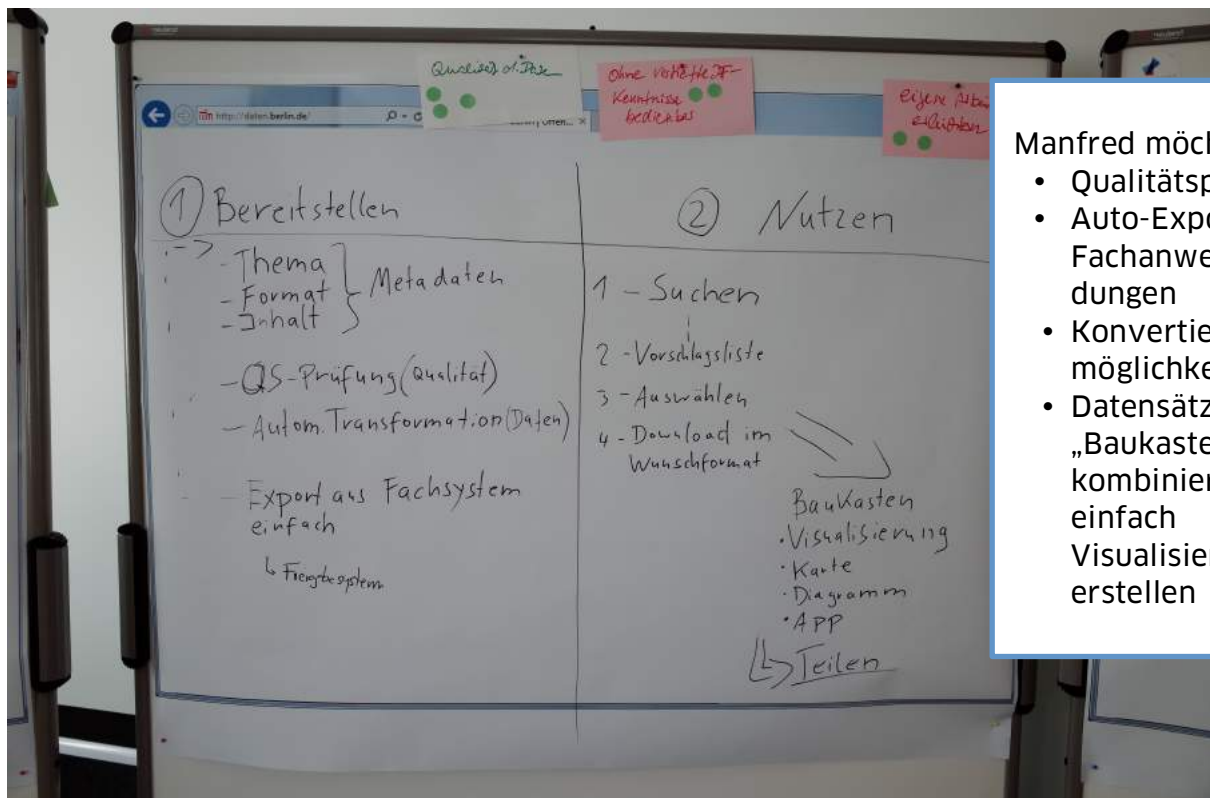 Qualität d. Daten
Ohne vertiefte IT-
Kenntnisse
bedienbar
eigene
http://daten.berlin.de/
① Bereitstellen
- Thema
- Format
- Inhalt
Metadaten
- QS-Prüfung (Qualität)
- Autom. Transformation (Daten)
- Export aus Fachsystem
einfach
② Nutzen
1 - Suchen
2 - Vorschlagsliste
3 - Auswählen
4 - Download im
Wunschformat
Baukasten
• Visualisierung
• Karte
• Diagramm
• APP
Teilen
Manfred möch
• Qualitätsp
• Auto-Expo
Fachanwe
dungen
• Konvertie
möglichke
• Datensätz
„Baukaste
kombinier
einfach
Visualisier
erstellen